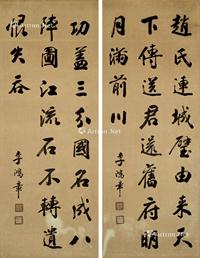 趙氏連城璧由來天
下傳送君還舊府明
月滿前川
李鴻章
功蓋三分國名成八
陣圖江流石不轉遺
恨失吞
李鴻章